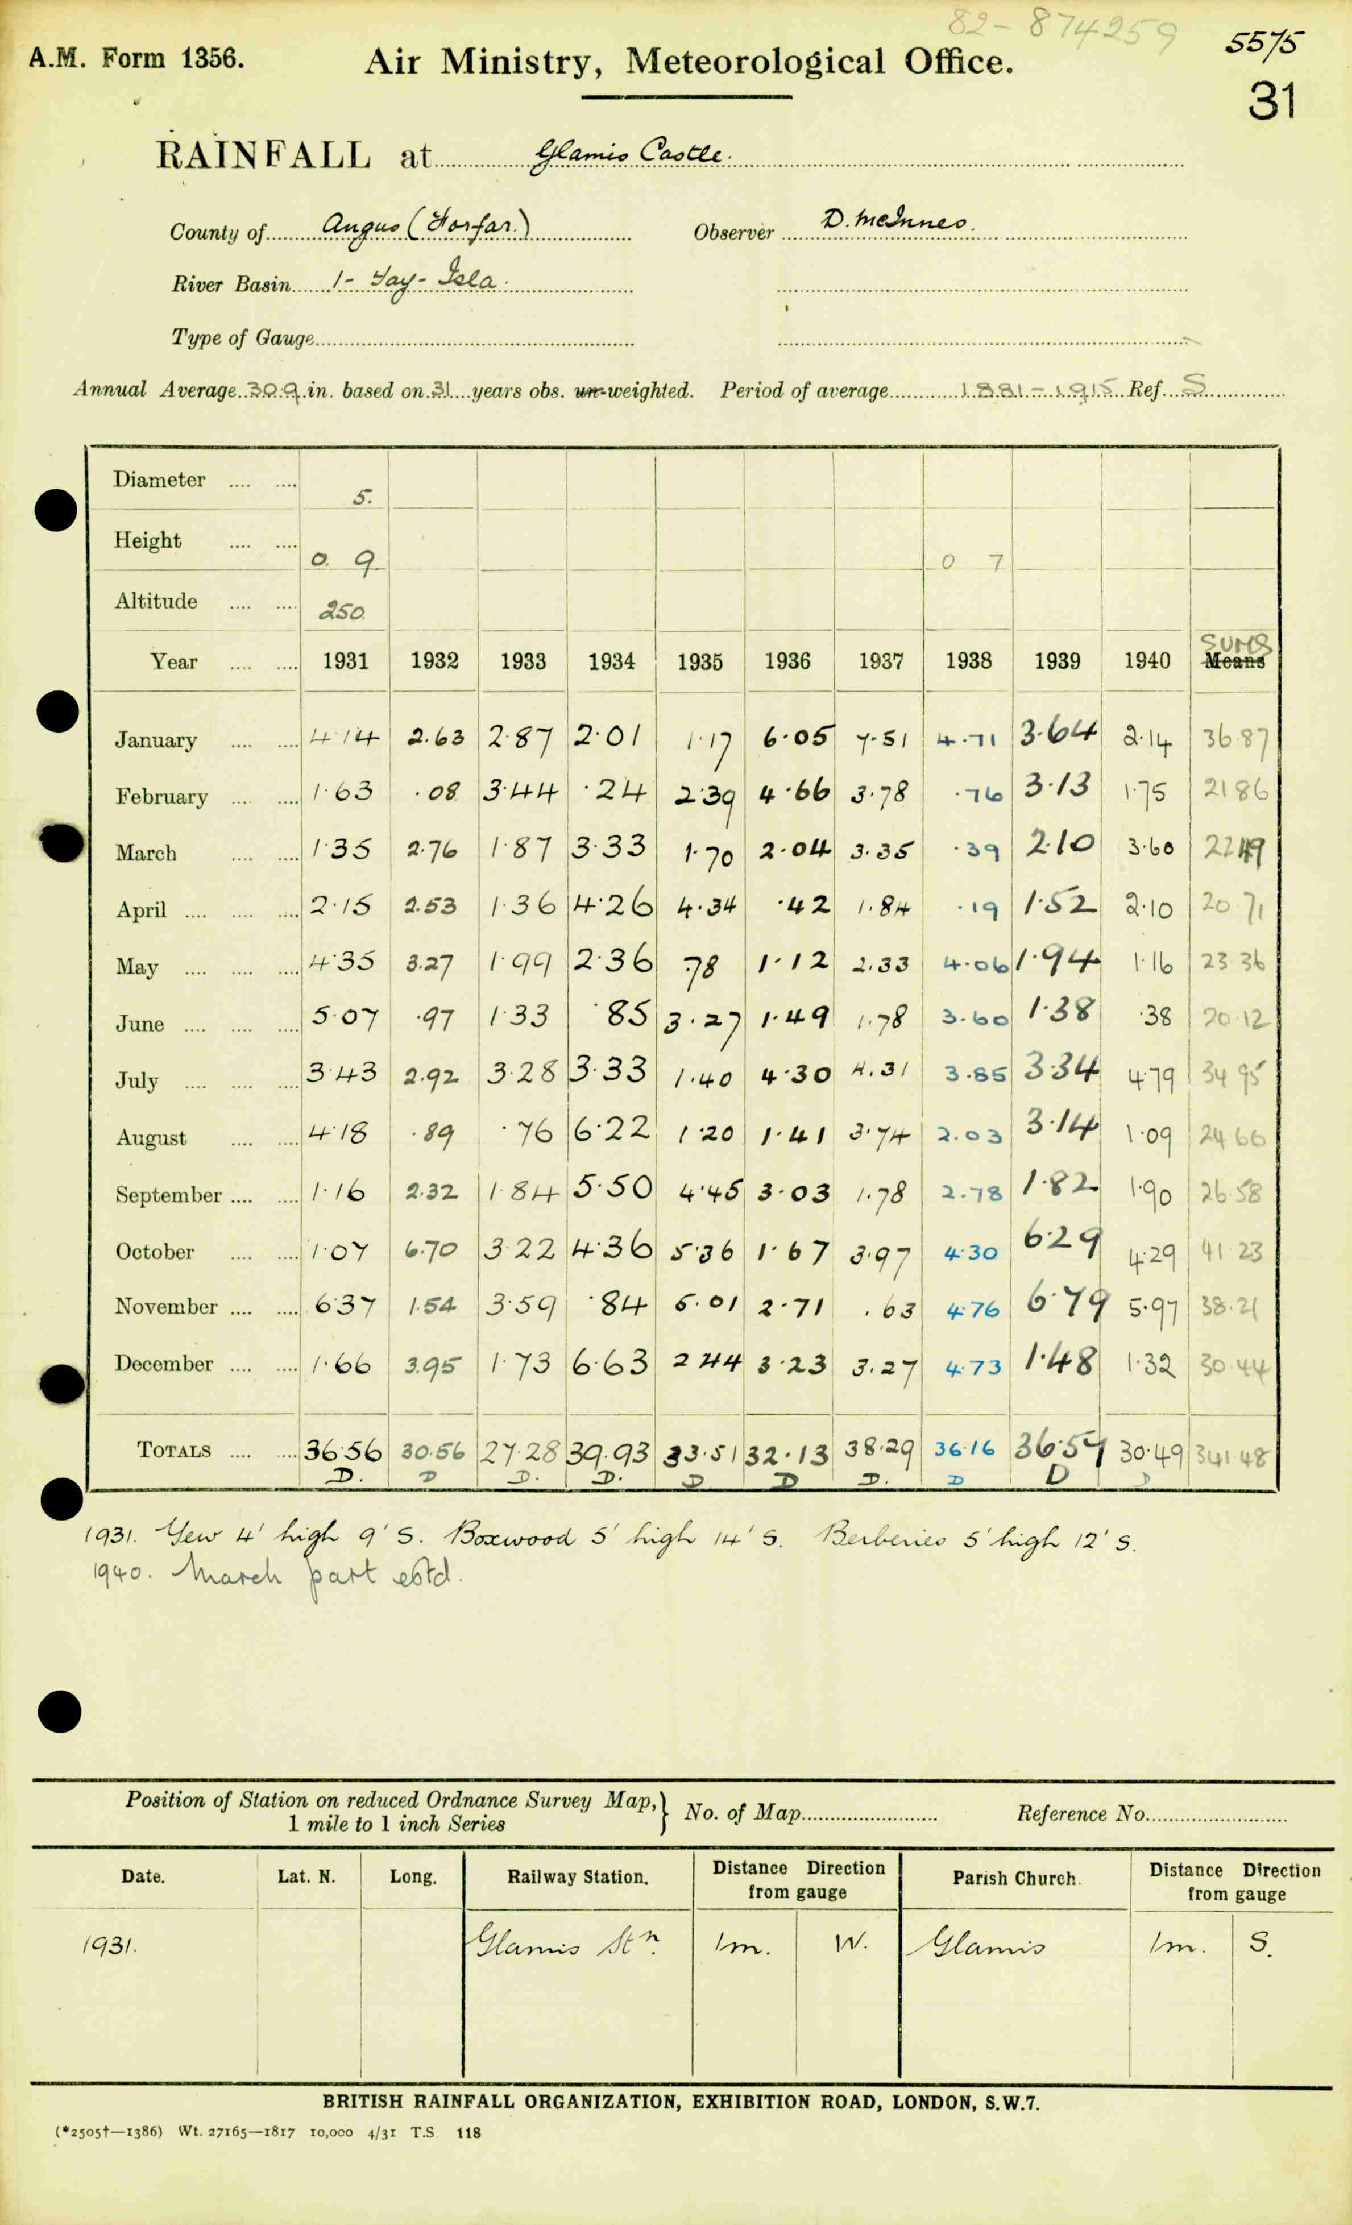 82-874259
5575
A.M. Form 1356. Air Ministry, Meteorological Office.
31
RAINFALL at Glamis Castle.
County of Angus (Forfar.) Observer D. McInnes.
River Basin 1- Tay- Isla.
Type of Gauge
Annual Average 30.9 in. based on 31 years obs. un-weighted. Period of average 1881-1915 Ref. S
Diameter 5.
Height 0. 9. 0 7
Altitude 250
Year 1931 1932 1933 1934 1935 1936 1937 1938 1939 1940 Means SUMS
January 4.14 2.63 2.87 2.01 1.17 6.05 7.51 4.71 3.64 2.14 36.87
February 1.63 .08 3.44 .24 2.39 4.66 3.78 .76 3.13 1.75 21 86
March 1.35 2.76 1.87 3.33 1.70 2.04 3.35 .39 2.10 3.60 22 49
April 2.15 2.53 1.36 4.26 4.34 .42 1.84 .19 1.52 2.10 20 71
May 4.35 3.27 1.99 2.36 .78 1.12 2.33 4.06 1.94 1.16 23 36
June 5.07 .97 1.33 .85 3.27 1.49 1.78 3.60 1.38 .38 20.12
July 3.43 2.92 3.28 3.33 1.40 4.30 4.31 3.85 3.34 4.79 34 95
August 4.18 .89 .76 6.22 1.20 1.41 3.74 2.03 3.14 1.09 24 66
September 1.16 2.32 1.84 5.50 4.45 3.03 1.78 2.78 1.82 1.90 26.58
October 1.07 6.70 3.22 4.36 5.36 1.67 3.97 4.30 6.29 4.29 41 23
November 6.37 1.54 3.59 .84 5.01 2.71 .63 4.76 6.79 5.97 38.21
December 1.66 3.95 1.73 6.63 2 44 3.23 3.27 4.73 1.48 1.32 30.44
TOTALS 36.56 30.56 27.28 39.93 33.51 32.13 38.29 36.16 36.57 30.49 341.48
D. D D. D. D D D. D D D
1931. Yew 4' high 9' S. Boxwood 5' high 14' S. Berberies 5' high 12' S.
1940. March part estd.
Position of Station on reduced Ordnance Survey Map, 1 mile to 1 inch Series } No. of Map Reference No.
Date. Lat. N. Long. Railway Station. Distance Direction from gauge Parish Church. Distance Direction from gauge
1931. Glamis Stn. 1m. W. Glamis 1m. S.
BRITISH RAINFALL ORGANIZATION, EXHIBITION ROAD, LONDON, S.W.7.
(*2505†—1386) Wt. 27165—1817 10,000 4/31 T.S. 118